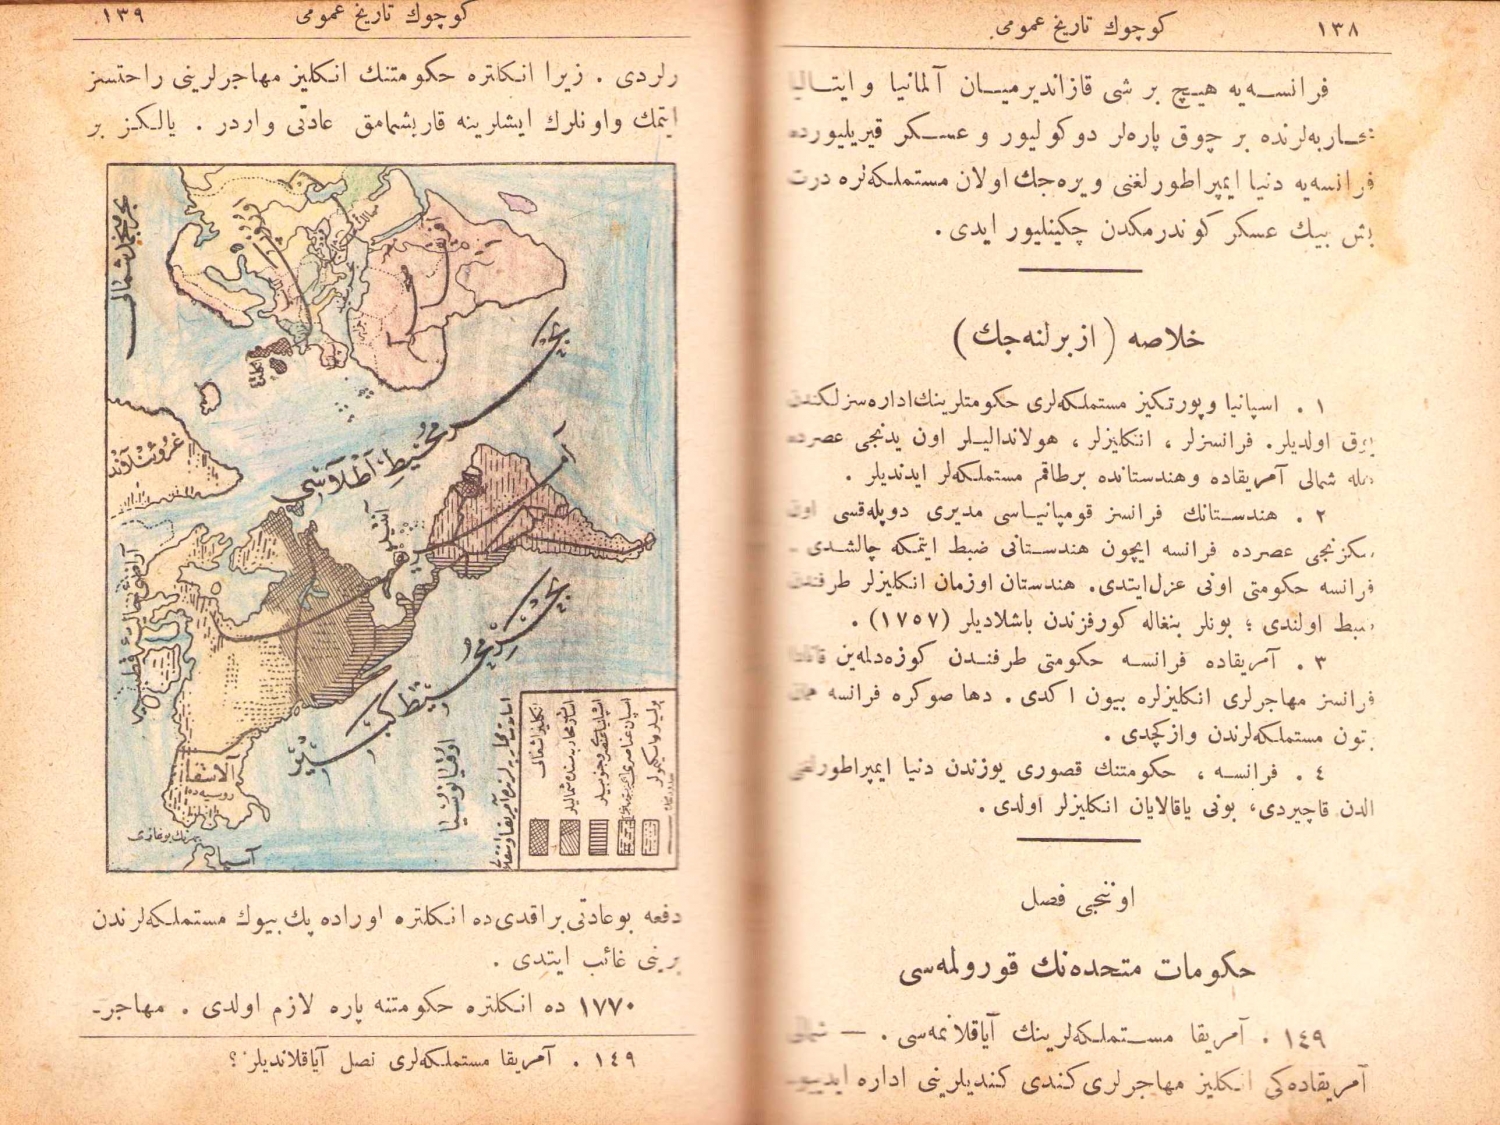 ١٣٨
كوچوك تاريخ عمومى
فرانسه‌يه هيچ بر شى قازانديرميان آلمانيا و ايتاليا
محاربه‌لرنده بر چوق پاره‌لر دوكوليور و عسكر قيريليورده
فرانسه‌يه دنيا ايمپراطورلغنى ويره‌جك اولان مستملكه‌لره درت
بش بيك عسكر كوندرمكدن چكينليور ايدى .
خلاصه ( ازبرلنه‌جك )
١ . اسپانيا وپورتكيز مستملكه‌لرى حكومتلرينك اداره‌سزلكندن
اولديلر. فرانسزلر ، انكليزلر ، هولانداليلر اون يدنجى عصرده
شمالى آمريقاده وهندستانده برطاقم مستملكه‌لر ايدنديلر .
٢ . هندستانك فرانسز قومپانياسى مديرى دوپله‌قسى اون
سكزنجى عصرده فرانسه ايچون هندستانى ضبط ايتمكه چالشدى .
فرانسه حكومتى اونى عزل ايتدى. هندستان اوزمان انكليزلر طرفندن
ضبط اولندى ؛ بونلر بنغاله كورفزندن باشلاديلر (١٧٥٧) .
٣ . آمريقاده فرانسه حكومتى طرفندن كوزه‌دلمه‌ين قانادا
فرانسز مهاجرلرى انكليزلره بيون اكدى . دها صوكره فرانسه
بتون مستملكه‌لرندن وازكچدى .
٤ . فرانسه ، حكومتنك قصورى يوزندن دنيا ايمپراطورلغى
الدن قاچيردى، بونى ياقالايان انكليزلر اولدى .
اوننجى فصل
حكومات متحده‌نك قورولمه‌سى
١٤٩ . آمريقا مستملكه‌لرينك آياقلانمه‌سى . — شمالى
آمريقاده‌كى انكليز مهاجرلرى كندى كنديلرينى اداره ايديو-
١٣٩
كوچوك تاريخ عمومى
رلردى . زيرا انكلتره حكومتنك انكليز مهاجرلرينى راحتسز
ايتمك واونلرك ايشلرينه قاريشمامق عادتى واردر . يالكز بر
بحر منجمد شمالى
آوروپا
آفريقا
غروئنلاند
محيط آطلاسى
آمريقا
آنتيل
بحر محيط كبير
اوقيانوسيا
آلاسقا
آسيا
دفعه بوعادتى براقدى‌ده انكلتره اوراده پك بيوك مستملكه‌لرندن
برينى غائب ايتدى .
١٧٧٠ ده انكلتره حكومتنه پاره لازم اولدى . مهاجر-
١٤٩ . آمريقا مستملكه‌لرى نصل آياقلانديلر ؟